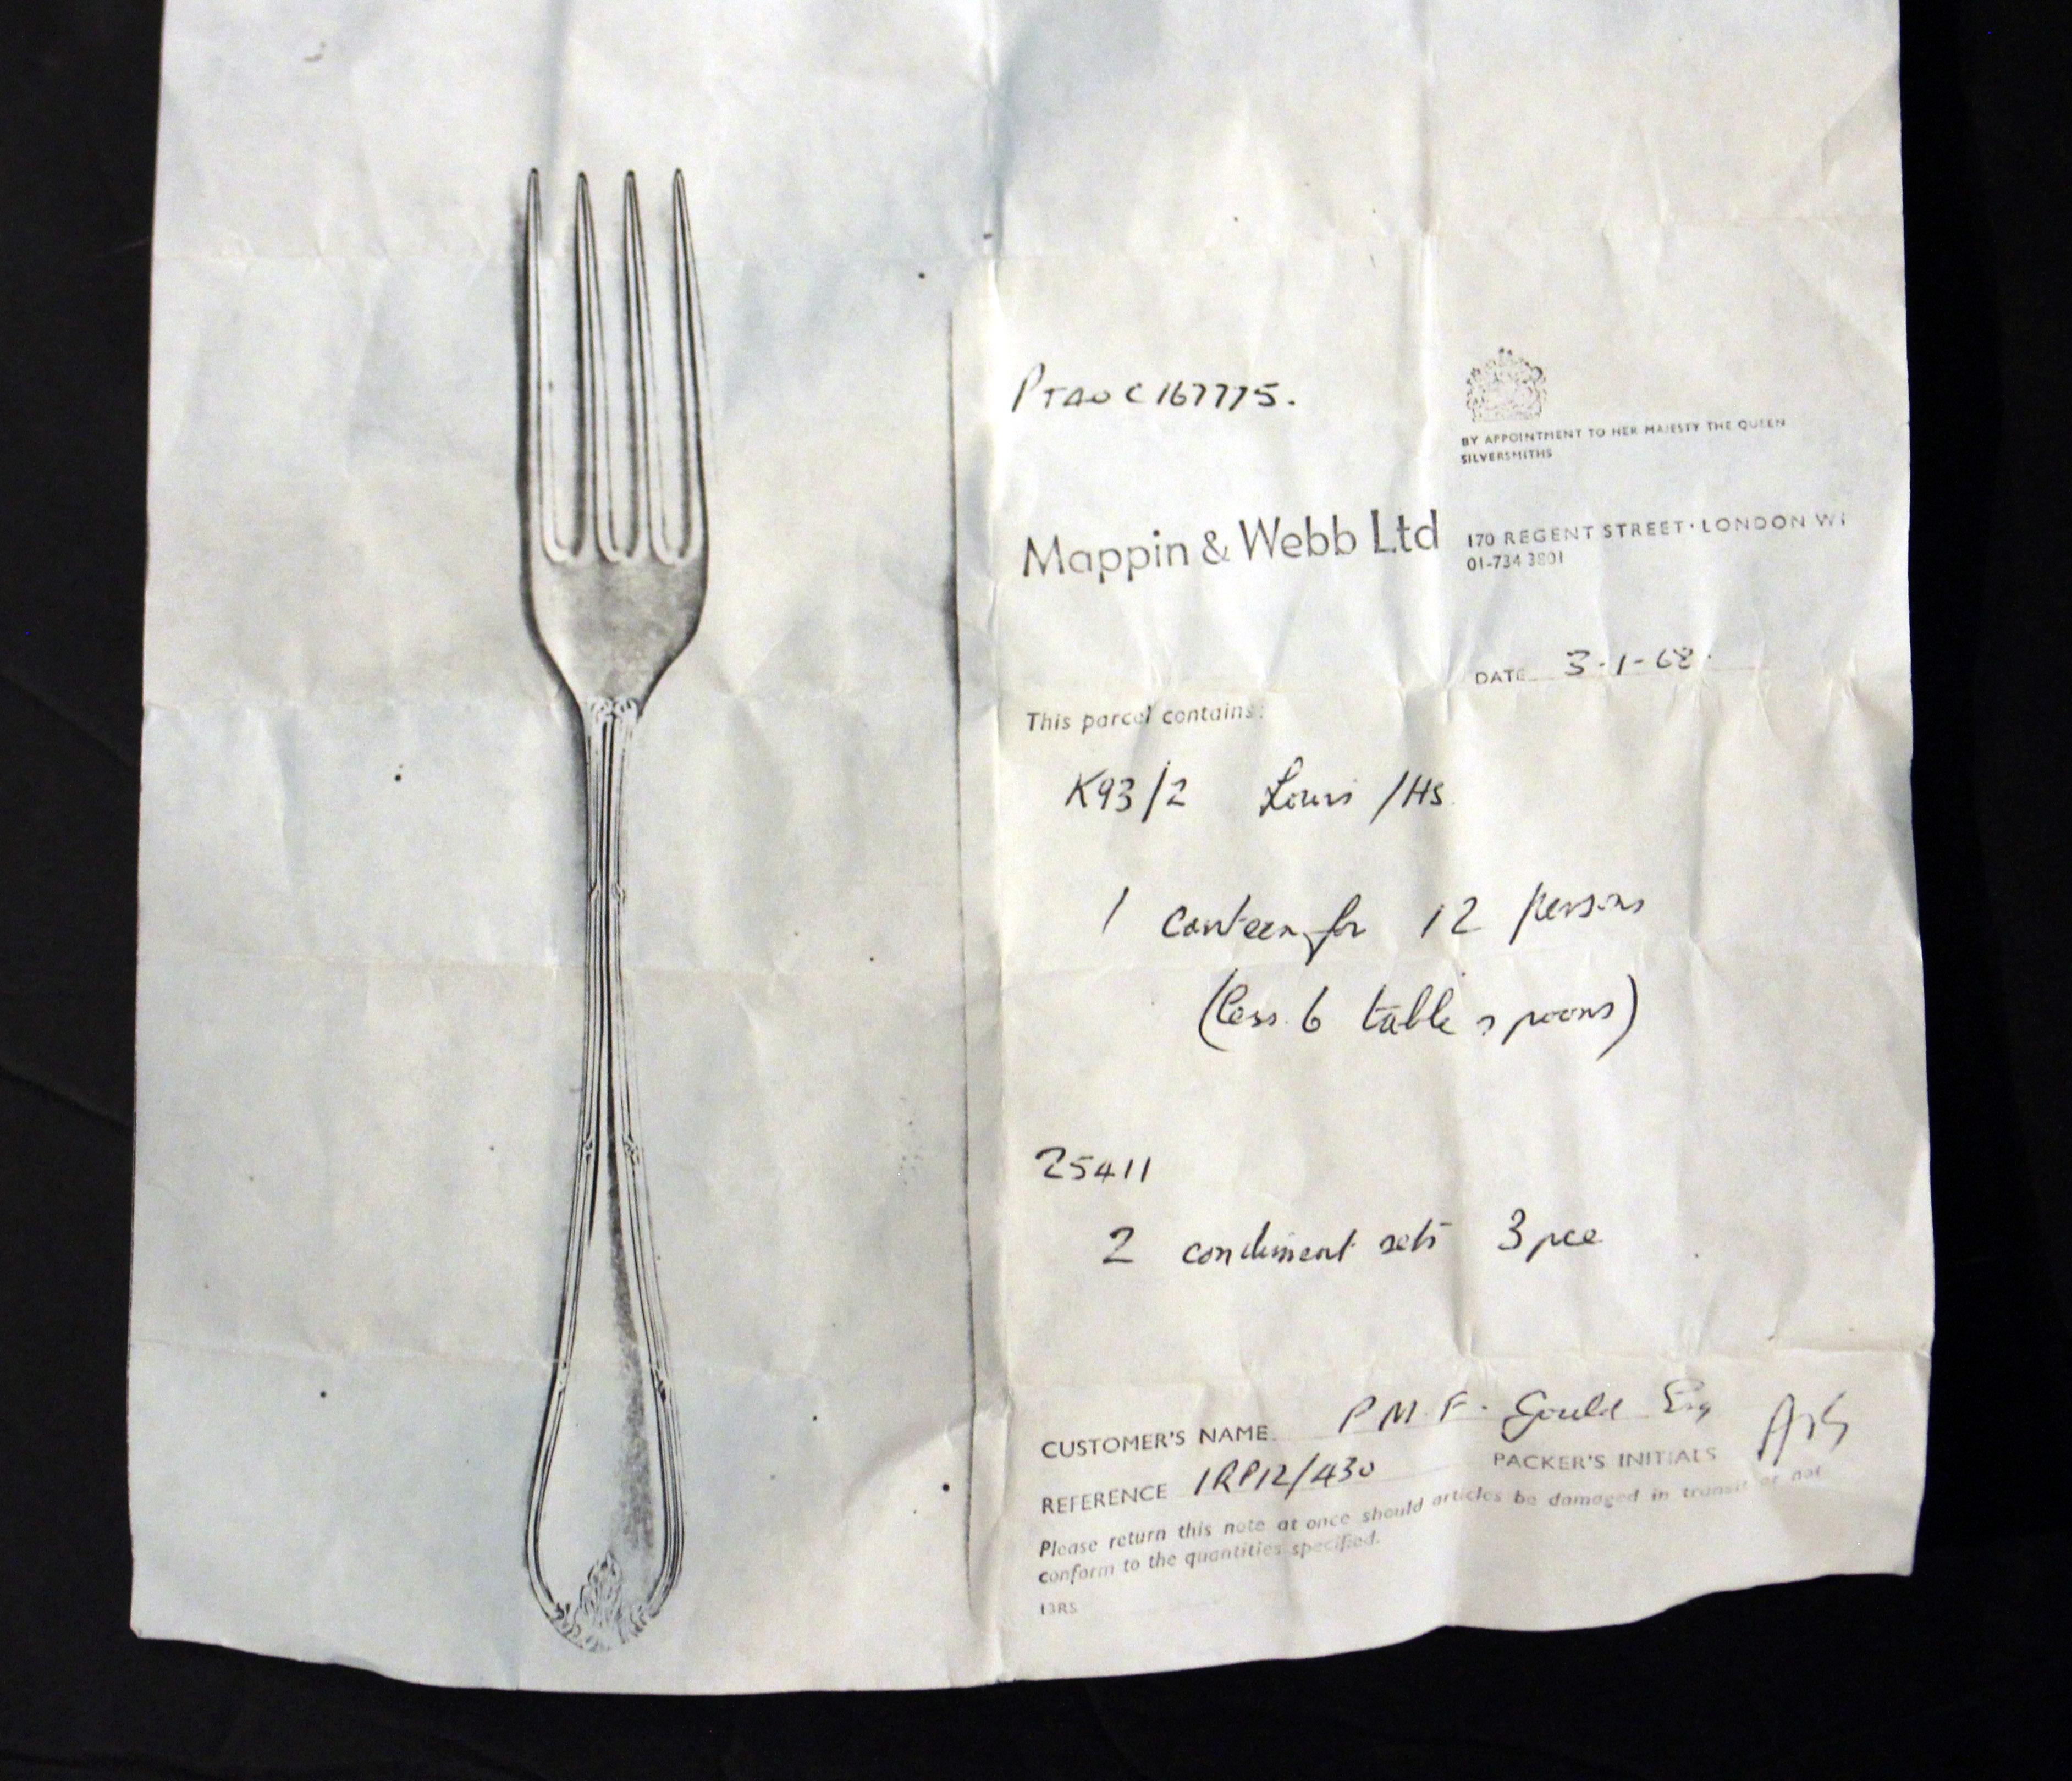 C 167775.
BY APPOINTMENT TO HER MAJESTY THE QUEEN
SILVERSMITHS
Mappin & Webb Ltd
170 REGENT STREET · LONDON W1
01-734 3801
DATE 3-1-68.
This parcel contains:
K93/2 Louis /HS
1 canteen for 12 persons
(less 6 table spoons)
25411
2 condiment sets 3 pce
CUSTOMER'S NAME P M F. Gould Esq
REFERENCE 1RP12/430 PACKER'S INITIALS
Please return this note at once should articles be damaged in transit or not
conform to the quantities specified.
13RS